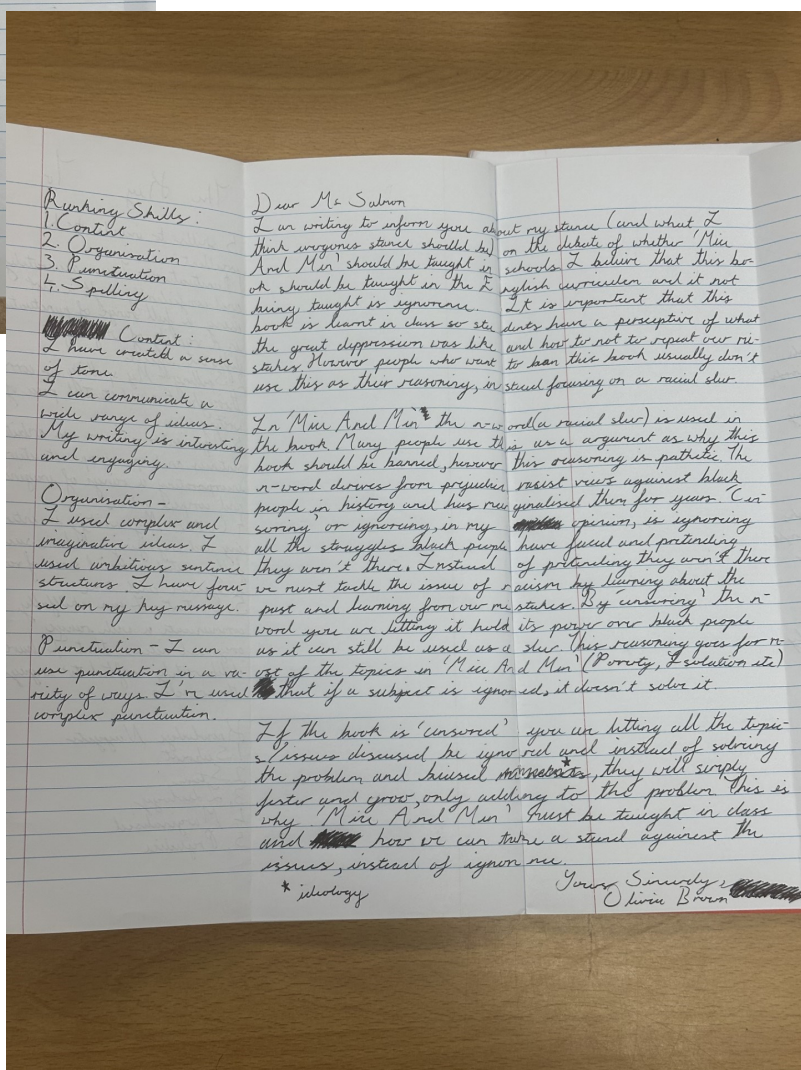 Ranking Skills:
1. Content
2. Organisation
3. Punctuation
4. Spelling
Content:
I have created a sense
of tone.
I can communicate a
wide range of ideas.
My writing is interesting
and engaging.
Organisation -
I used complex and
imaginative ideas. I
used ambitious sentence
structures. I have focu-
sed on my key message.
Punctuation - I can
use punctuation in a va-
riety of ways. I'm used
complex punctuation.
Dear Ms Salmon
I am writing to inform you about my stance (and what I
think everyones stance should be) on the debate of whether 'Mice
And Men' should be taught in schools. I believe that this bo-
ok should be taught in the English curriculum and it not
being taught is ignorence. It is important that this
book is learnt in class so students have a perspective of what
the great deppression was like and how to not to repeat our mi-
stakes. However people who want to ban this book usually don't
use this as their reasoning, instead focusing on a racial slur.
In 'Mice And Men' the n-word (a racial slur) is used in
the book. Many people use this as a argument as why this
book should be banned, however this reasoning is pathetic. The
n-word derives from prejudice racist views against black
people in history and has marginalised them for years. 'Cen-
soring' or ignoring, in my opinion, is ignoring
all the struggles black people have faced and pretending
they weren't there. Instead of pretending they aren't there
we must tackle the issue of racism by learning about the
past and learning from our mistakes. By 'censoring' the n-
word you are letting it hold its power over black people
as it can still be used as a slur. This reasoning goes for m-
ost of the topics in 'Mice And Men' (Poverty, Isolation etc)
that if a subject is ignored, it doesn't solve it.
If the book is 'censored' you are letting all the topic-
s/issues discussed be ignored and instead of solveing
the problem and biased *, they will simply
fester and grow, only adding to the problem. This is
why 'Mice And Men' must be taught in class
and how we can take a stand againest the
issues, instead of ignorence.
Yours Sincerely,
Olivia Brown
* ideology